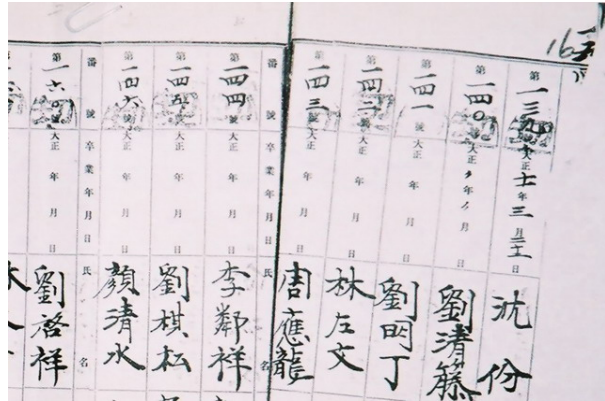 16
第一三九號 大正十一年三月二十二日 沈份
第一四〇號 大正 年 月 日 劉清籐
第一四一號 大正 年 月 日 劉明丁
第一四二號 大正 年 月 日 林左文
第一四三號 大正 年 月 日 周應龍
番號 卒業年月日 氏名
第一四四號 大正 年 月 日 李鄰祥
第一四五號 大正 年 月 日 劉棋松
第一四六號 大正 年 月 日 顏清水
番號 卒業年月日 氏名
第一六四號 大正 年 月 日 劉啓祥